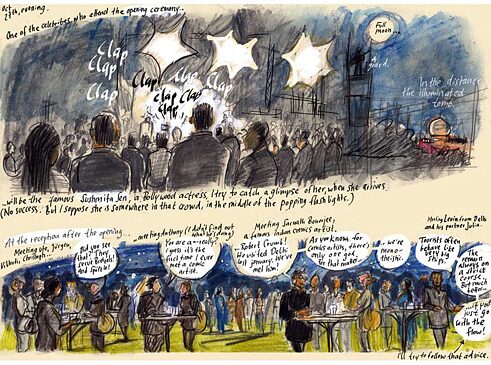 Oct
29th, evening.
One of the celebrities who attend the opening ceremony...
Clap
Clap
Clap
Clap!
Clap
Clap
Clap
Clap
Full
moon...
A
guard.
In the distance
the illuminated
tomb.
...will be the famous Sushmita Sen, a Bollywood actress, I try to catch a glimpse of her, when she arrives.
(No success. But I suppose she is somewhere in that crowd, in the middle of the popping flashlights.)
At the reception after the opening...
Meeting Ute, Jürgen,
through...
Did you
see that?
They
serve
and
...meeting Anthony (I didn't find out
what he's doing)
You are a... really?
yes it's the
first time I ever
met a comic
artist.
Meeting Sarnath Banerjee,
a famous Indian comics artist.
Robert Crumb!
He visited Delhi
last January. We've
met him!
As you know, for
comics artists, there's
only one god.
In that matter...
...we're
mono-
theistic.
from Delhi
and his partner Julia.
Tourists often
behave like
very big
The
remain
always on
a strict
course.
But much
better...
...if you
just go
with the
flow!
I'll try to follow that advice.